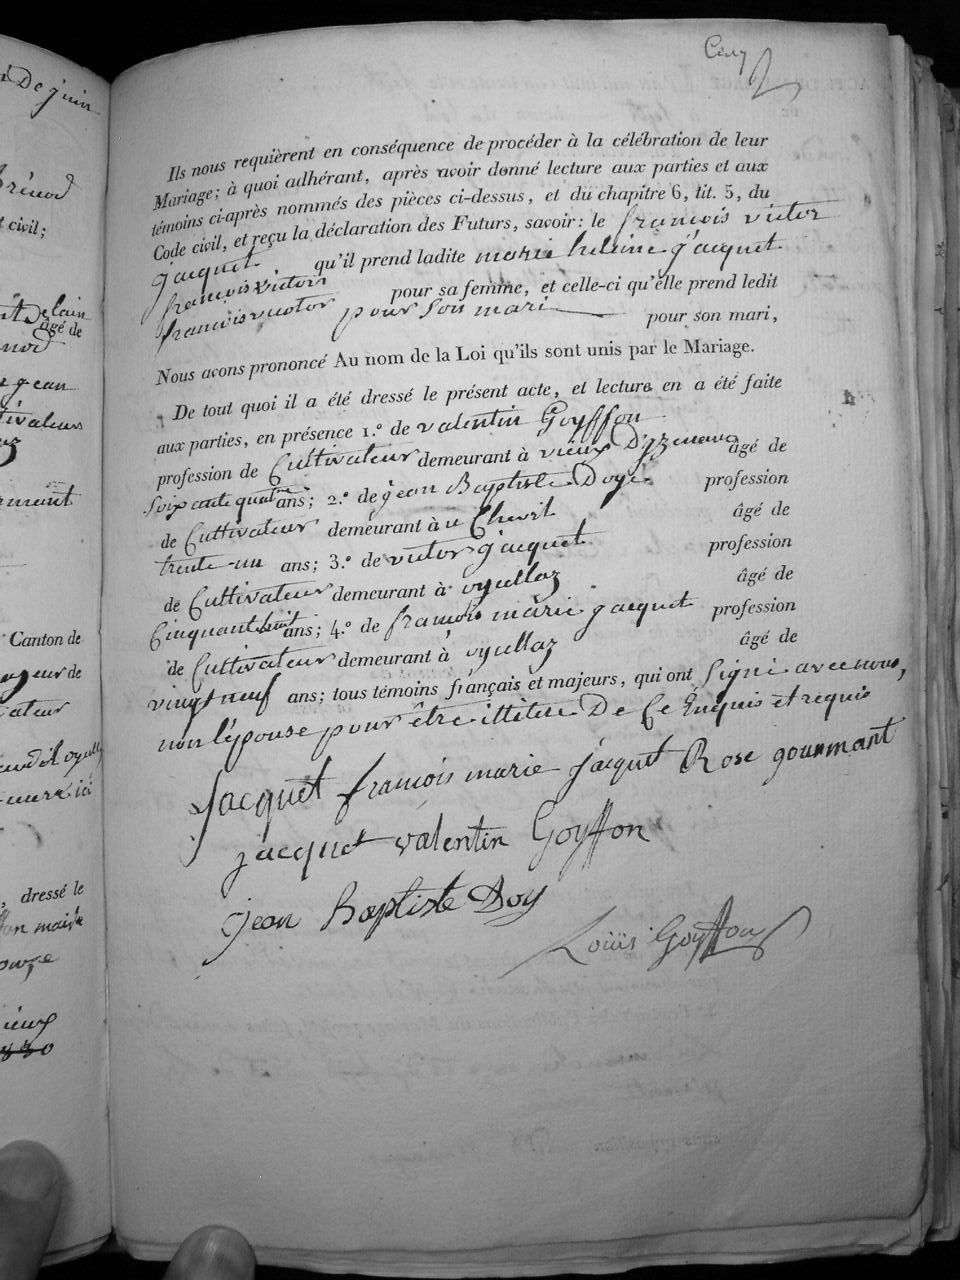 Cinq
Ils nous requièrent en conséquence de procéder à la célébration de leur
Mariage; à quoi adhérant, après avoir donné lecture aux parties et aux
témoins ci-après nommés des pièces ci-dessus, et du chapitre 6, tit. 5, du
Code civil, et reçu la déclaration des Futurs, savoir: le françois victor
jacquet qu'il prend ladite marie heleine jacquet
françois victoir pour sa femme, et celle-ci qu'elle prend ledit
françois victor pour son mari pour son mari,
Nous avons prononcé Au nom de la Loi qu'ils sont unis par le Mariage.
De tout quoi il a été dressé le présent acte, et lecture en a été faite
aux parties, en présence 1.º de valentin Goyffon
profession de Cultivateur demeurant à vieux D'yzenave âgé de
Soixante quatre ans; 2.º de jean Baptiste Doye profession
de Cultivateur demeurant à u Chevit âgé de
trente-un ans; 3.º de victor jacquet profession
de Cultivateur demeurant à oyullaz âgé de
Cinquant huit ans; 4.º de framois marie jacquet profession
de Cultivateur demeurant à oyullaz âgé de
vingt neuf ans; tous témoins français et majeurs, qui ont Signé avec nous,
non l'épouse pour être illitere De Ce Enquis et requis
Jacquet framois marie jacquet Rose gourmant
jacquet valentin Goyffon
jean Baptiste Doy
Louis Goyffon
De juin
t civil;
âgé de
Canton de
, dressé le